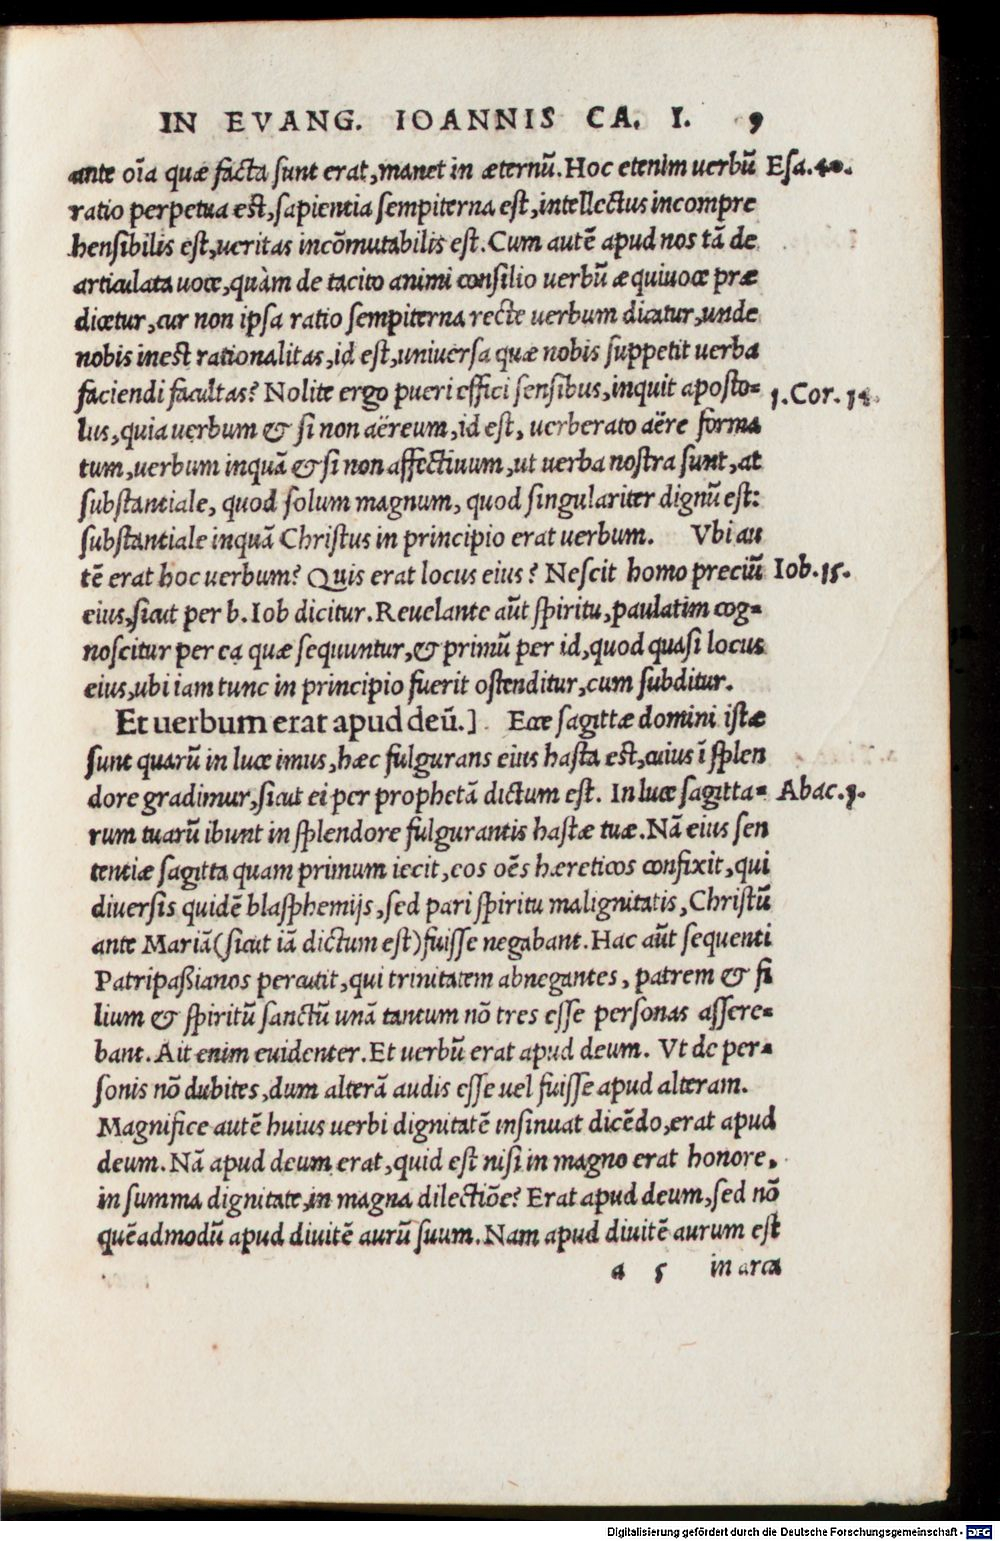 IN EVANG. IOANNIS CA. I. 9
ante oĩa quæ facta sunt erat, manet in æternũ. Hoc etenim uerbũ Esa. 40.
ratio perpetua est, sapientia sempiterna est, intellectus incompre
hensibilis est, ueritas incõmutabilis est. Cum autẽ apud nos tã de
articulata uoce, quàm de tacito animi consilio uerbũ æquiuoce præ
dicetur, cur non ipsa ratio sempiterna recte uerbum dicatur, unde
nobis inest rationalitas, id est, uniuersa quæ nobis suppetit uerba
faciendi facultas? Nolite ergo pueri effici sensibus, inquit aposto- 1. Cor. 14.
lus, quia uerbum & si non aëreum, id est, uerberato aëre forma
tum, uerbum inquã & si non affectiuum, ut uerba nostra sunt, at
substantiale, quod solum magnum, quod singulariter dignũ est:
substantiale inquã Christus in principio erat uerbum. Vbi au
tẽ erat hoc uerbum? Quis erat locus eius? Nescit homo preciũ Iob. 15.
eius, sicut per b. Iob dicitur. Reuelante aũt spiritu, paulatim cog-
noscitur per ea quæ sequuntur, & primũ per id, quod quasi locus
eius, ubi iam tunc in principio fuerit ostenditur, cum subditur.
Et uerbum erat apud deũ.] Ecce sagittæ domini istæ
sunt quarũ in luce imus, hæc fulgurans eius hasta est, cuius ĩ splen
dore gradimur, sicut ei per prophetã dictum est. In luce sagitta- Abac. 3.
rum tuarũ ibunt in splendore fulgurantis hastæ tuæ. Nã eius sen
tentiæ sagitta quam primum iecit, eos oẽs hæreticos confixit, qui
diuersis quidẽ blasphemijs, sed pari spiritu malignitatis, Christũ
ante Mariã (sicut iã dictum est) fuisse negabant. Hac aũt sequenti
Patripaßianos percutit, qui trinitatem abnegantes, patrem & fi
lium & spiritũ sanctũ unã tantum nõ tres esse personas assere-
bant. Ait enim euidenter. Et uerbũ erat apud deum. Vt de per-
sonis nõ dubites, dum alterã audis esse uel fuisse apud alteram.
Magnifice autẽ huius uerbi dignitatẽ insinuat dicẽdo, erat apud
deum. Nã apud deum erat, quid est nisi in magno erat honore,
in summa dignitate, in magna dilectiõe? Erat apud deum, sed nõ
quẽadmodũ apud diuitẽ aurũ suum. Nam apud diuitẽ aurum est
a 5 in arca
Digitalisierung gefördert durch die Deutsche Forschungsgemeinschaft - DFG